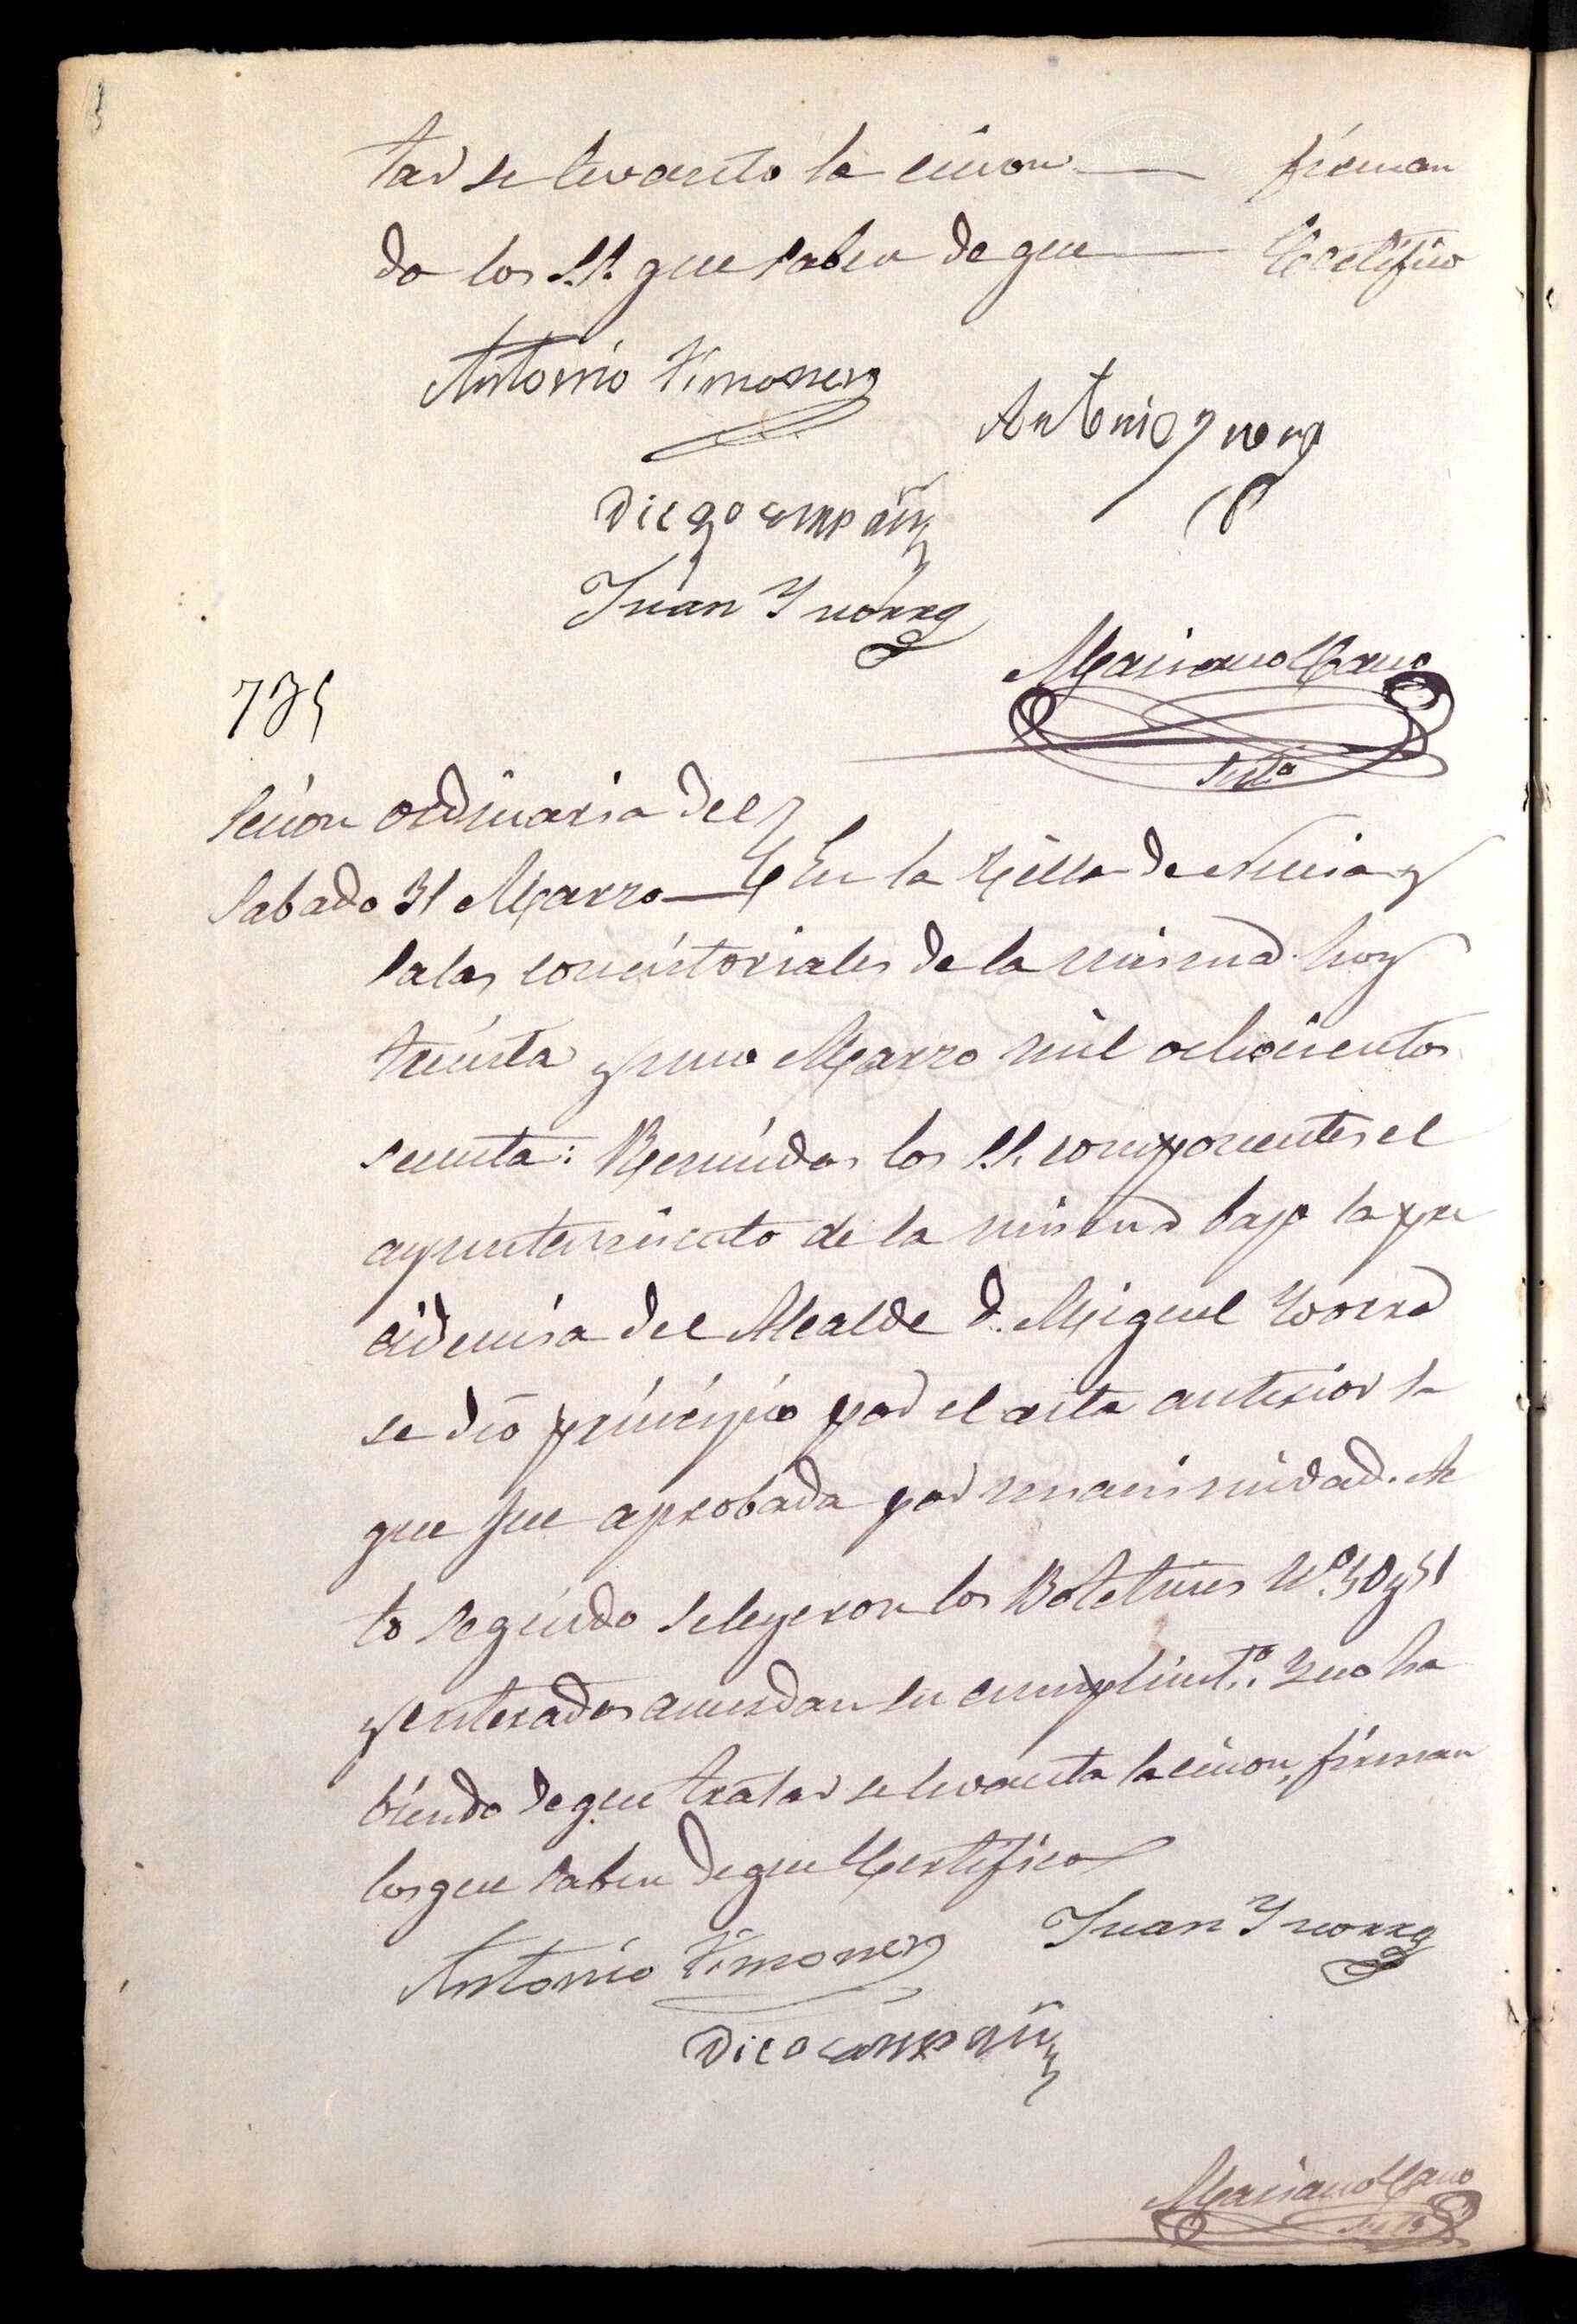 tar se levanto la cicion — firman
do los S.S. que saben de que — Certifico
Antonio Ximenez
Antonio Yvorra
Diego Company
Juan Yvorra
Mariano Cano
Srio
735
Secion ordinaria del
Sabado 31 Marzo — En la Villa de Nucia y
salas concistoriales de la misma hoy
treinta y uno Marzo mil ochocientos
Reunidos los S.S. componentes el
ayuntamiento de la misma bajo la pre
cidencia del Alcalde D. Miguel Yvorra
se dió principio por el acta anterior la
que fue aprobada por unanimidad. Ac
to seguido se leyeron los Boletines Nº 50 y 51
y enterados acuerdan su cumplimtº. Y no ha
biendo de que tratar se levanta la cicion, firman
los que saben de que Certifico
Antonio Ximenez
Juan Yvorra
Diego Company
Mariano Cano
Srio